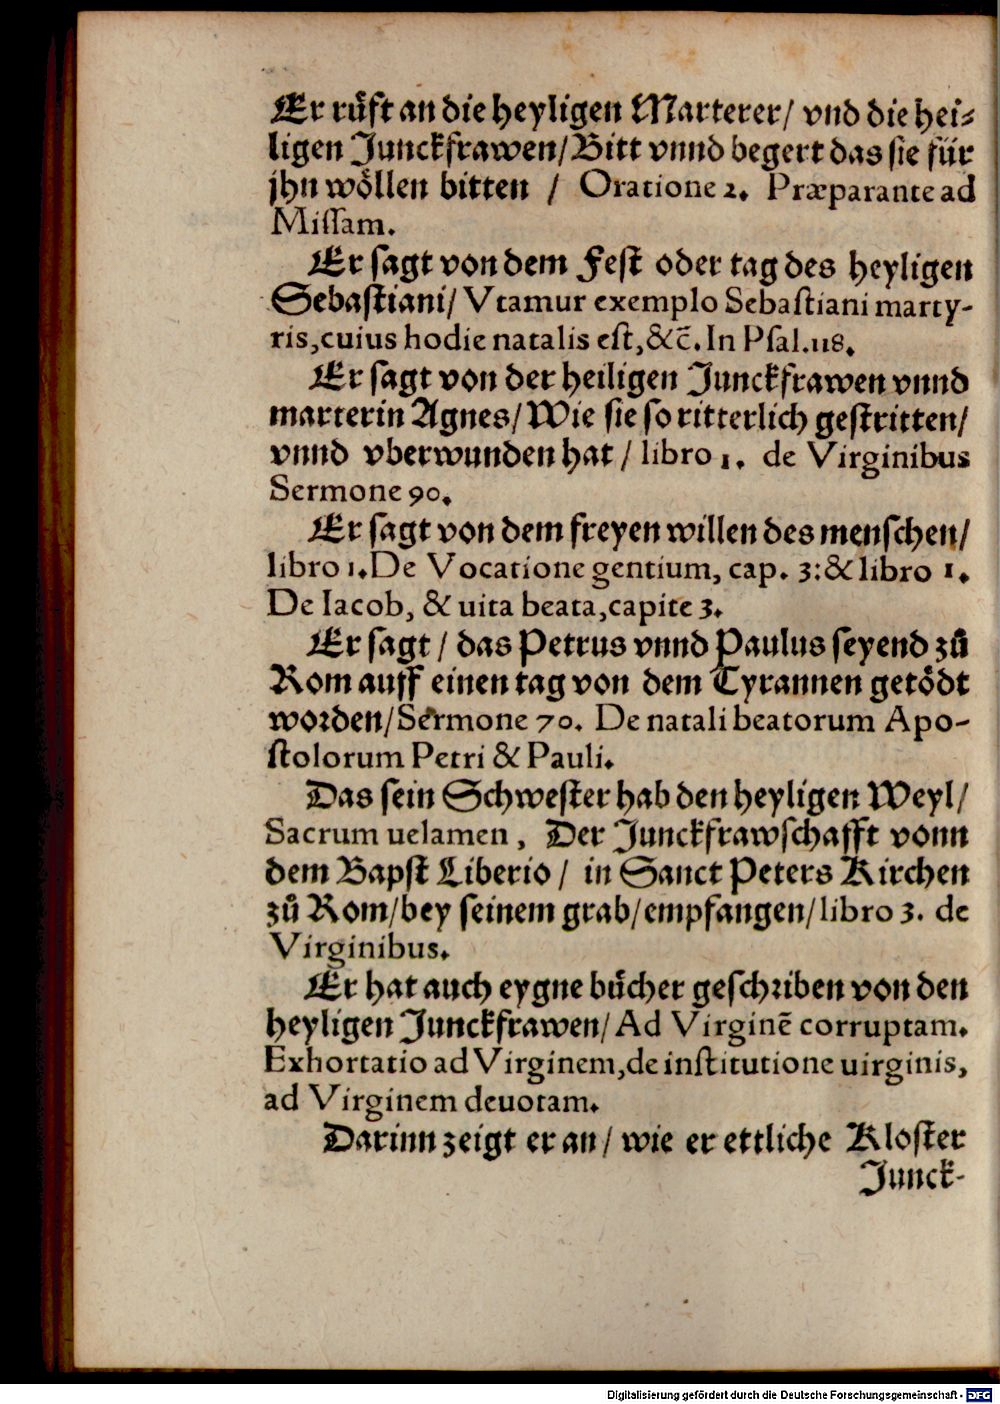 Er růfft an die heyligen Marterer/ vnd die hei-
ligen Junckfrawen/Bitt vnnd begert das sie für
jhn wöllen bitten / Oratione 2. Præparante ad
Missam.
Er sagt von dem Fest oder tag des heyligen
Sebastiani/ Vtamur exemplo Sebastiani marty-
ris,cuius hodie natalis est,&c̄. In Psal.118.
Er sagt von der heiligen Junckfrawen vnnd
marterin Agnes/Wie sie so ritterlich gestritten/
vnnd vberwunden hat / libro 1. de Virginibus
Sermone 90.
Er sagt von dem freyen willen des menschen/
libro 1.De Vocatione gentium, cap. 3:& libro 1.
De Iacob, & uita beata,capite 3.
Er sagt / das Petrus vnnd Paulus seyend zů
Rom auff einen tag von dem Tyrannen getödt
worden/Sermone 70. De natali beatorum Apo-
stolorum Petri & Pauli.
Das sein Schwester hab den heyligen Weyl/
Sacrum uelamen, Der Junckfrawschafft vonn
dem Bapst Liberio / in Sanct Peters Kirchen
zů Rom/bey seinem grab/empfangen/libro 3. de
Virginibus.
Er hat auch eygne bücher geschriben von den
heyligen Junckfrawen/ Ad Virginē corruptam.
Exhortatio ad Virginem,de institutione uirginis,
ad Virginem deuotam.
Darinn zeigt er an/ wie er ettliche Kloster
Junck-
Digitalisierung gefördert durch die Deutsche Forschungsgemeinschaft - DFG